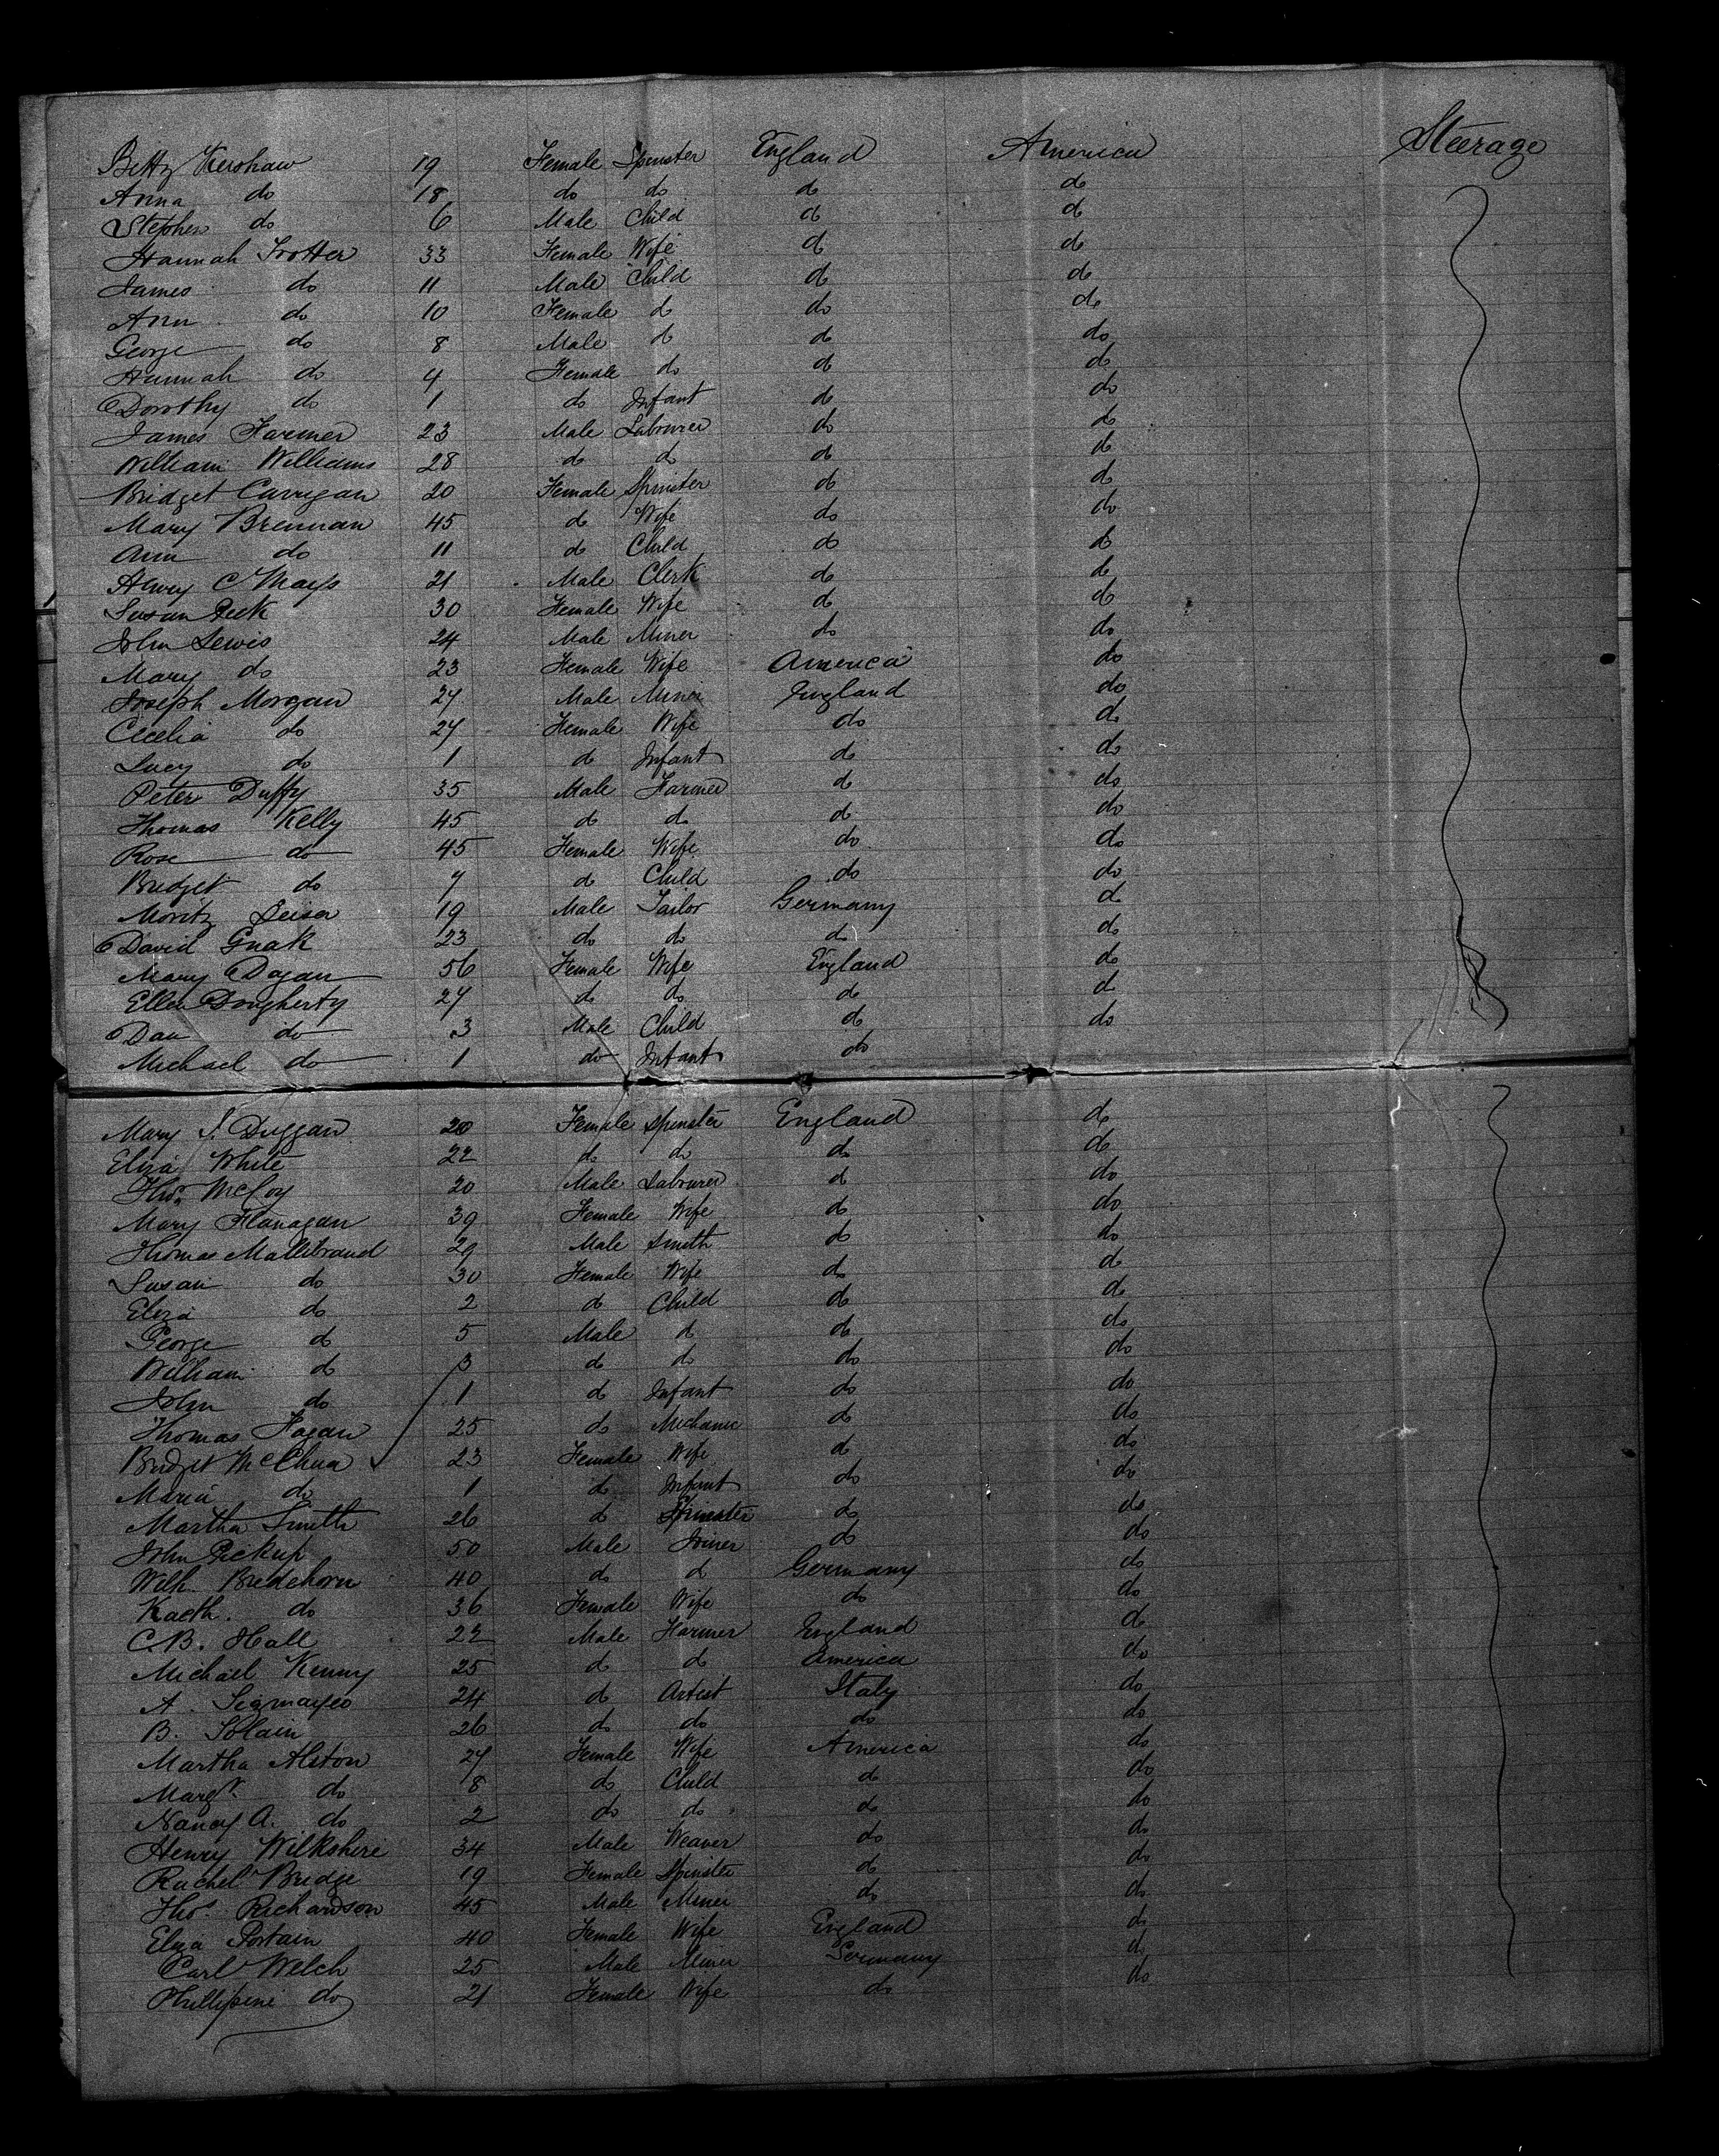 Betty Kershaw 19 Female Spinster England America Steerage
Anna do 18 do do do do
Stephen do 6 Male Child do do
Hannah Trotter 33 Female Wife do do
James do 11 Male Child do do
Ann do 10 Female do do do
George do 8 Male do do do
Hannah do 4 Female do do do
Dorothy do 1 do Infant do do
James Farmer 23 Male Labourer do do
William Williams 28 do do do do
Bridget Carrigan 20 Female Spinster do do
Mary Brennan 45 do Wife do do
Ann do 11 do Child do do
Henry C Mays 21 Male Clerk do do
Susan Peek 30 Female Wife do do
John Lewis 24 Male Miner do do
Mary do 23 Female Wife America do
Joseph Morgan 27 Male Miner England do
Cecelia do 27 Female Wife do do
Lucy do 1 do Infant do do
Peter Duffy 35 Male Farmer do do
Thomas Kelly 45 do do do do
Rose do 45 Female Wife do do
Bridget do 7 do Child do do
Moritz 19 Male Tailor Germany do
David Gnak 23 do do do do
Mary Dagan 56 Female Wife England do
Ellen Dougherty 27 do do do do
Dan do 3 Male Child do do
Michael do 1 do Infant do
Mary J. Duggan 20 Female Spinster England do
Eliza White 22 do do do do
Thos McCoy 20 Male Labourer do do
Mary Flanagan 39 Female Wife do do
Thomas Mallibrand 29 Male Smith do do
Susan do 30 Female Wife do do
Eliza do 2 do Child do do
George do 5 Male do do do
William do 3 do do do do
John do 1 do Infant do do
Thomas Fagan 25 do Mechanic do do
Bridget 23 Female Wife do do
Maria do 1 do Infant do do
Martha Smith 26 do Spinster do do
John Pickup 50 Male Joiner do do
Wilh. Bredehorn 40 do do Germany do
Kaeth. do 36 Female Wife do do
C.B. Hall 22 Male Farmer England do
Michael Kenny 25 do do America do
A. 24 do Artist Italy do
B. Solain 26 do do do do
Martha Alston 27 Female Wife America do
Margt. do 8 do Child do do
Nancy A. do 2 do do do do
Henry Wilkshire 34 Male Weaver do do
Rachel Bridge 19 Female Spinster do do
Thos. Richardson 45 Male Miner do do
Eliza Portain 40 Female Wife England do
Carl Welch 25 Male Miner Germany do
Phillipini do 21 Female Wife do do